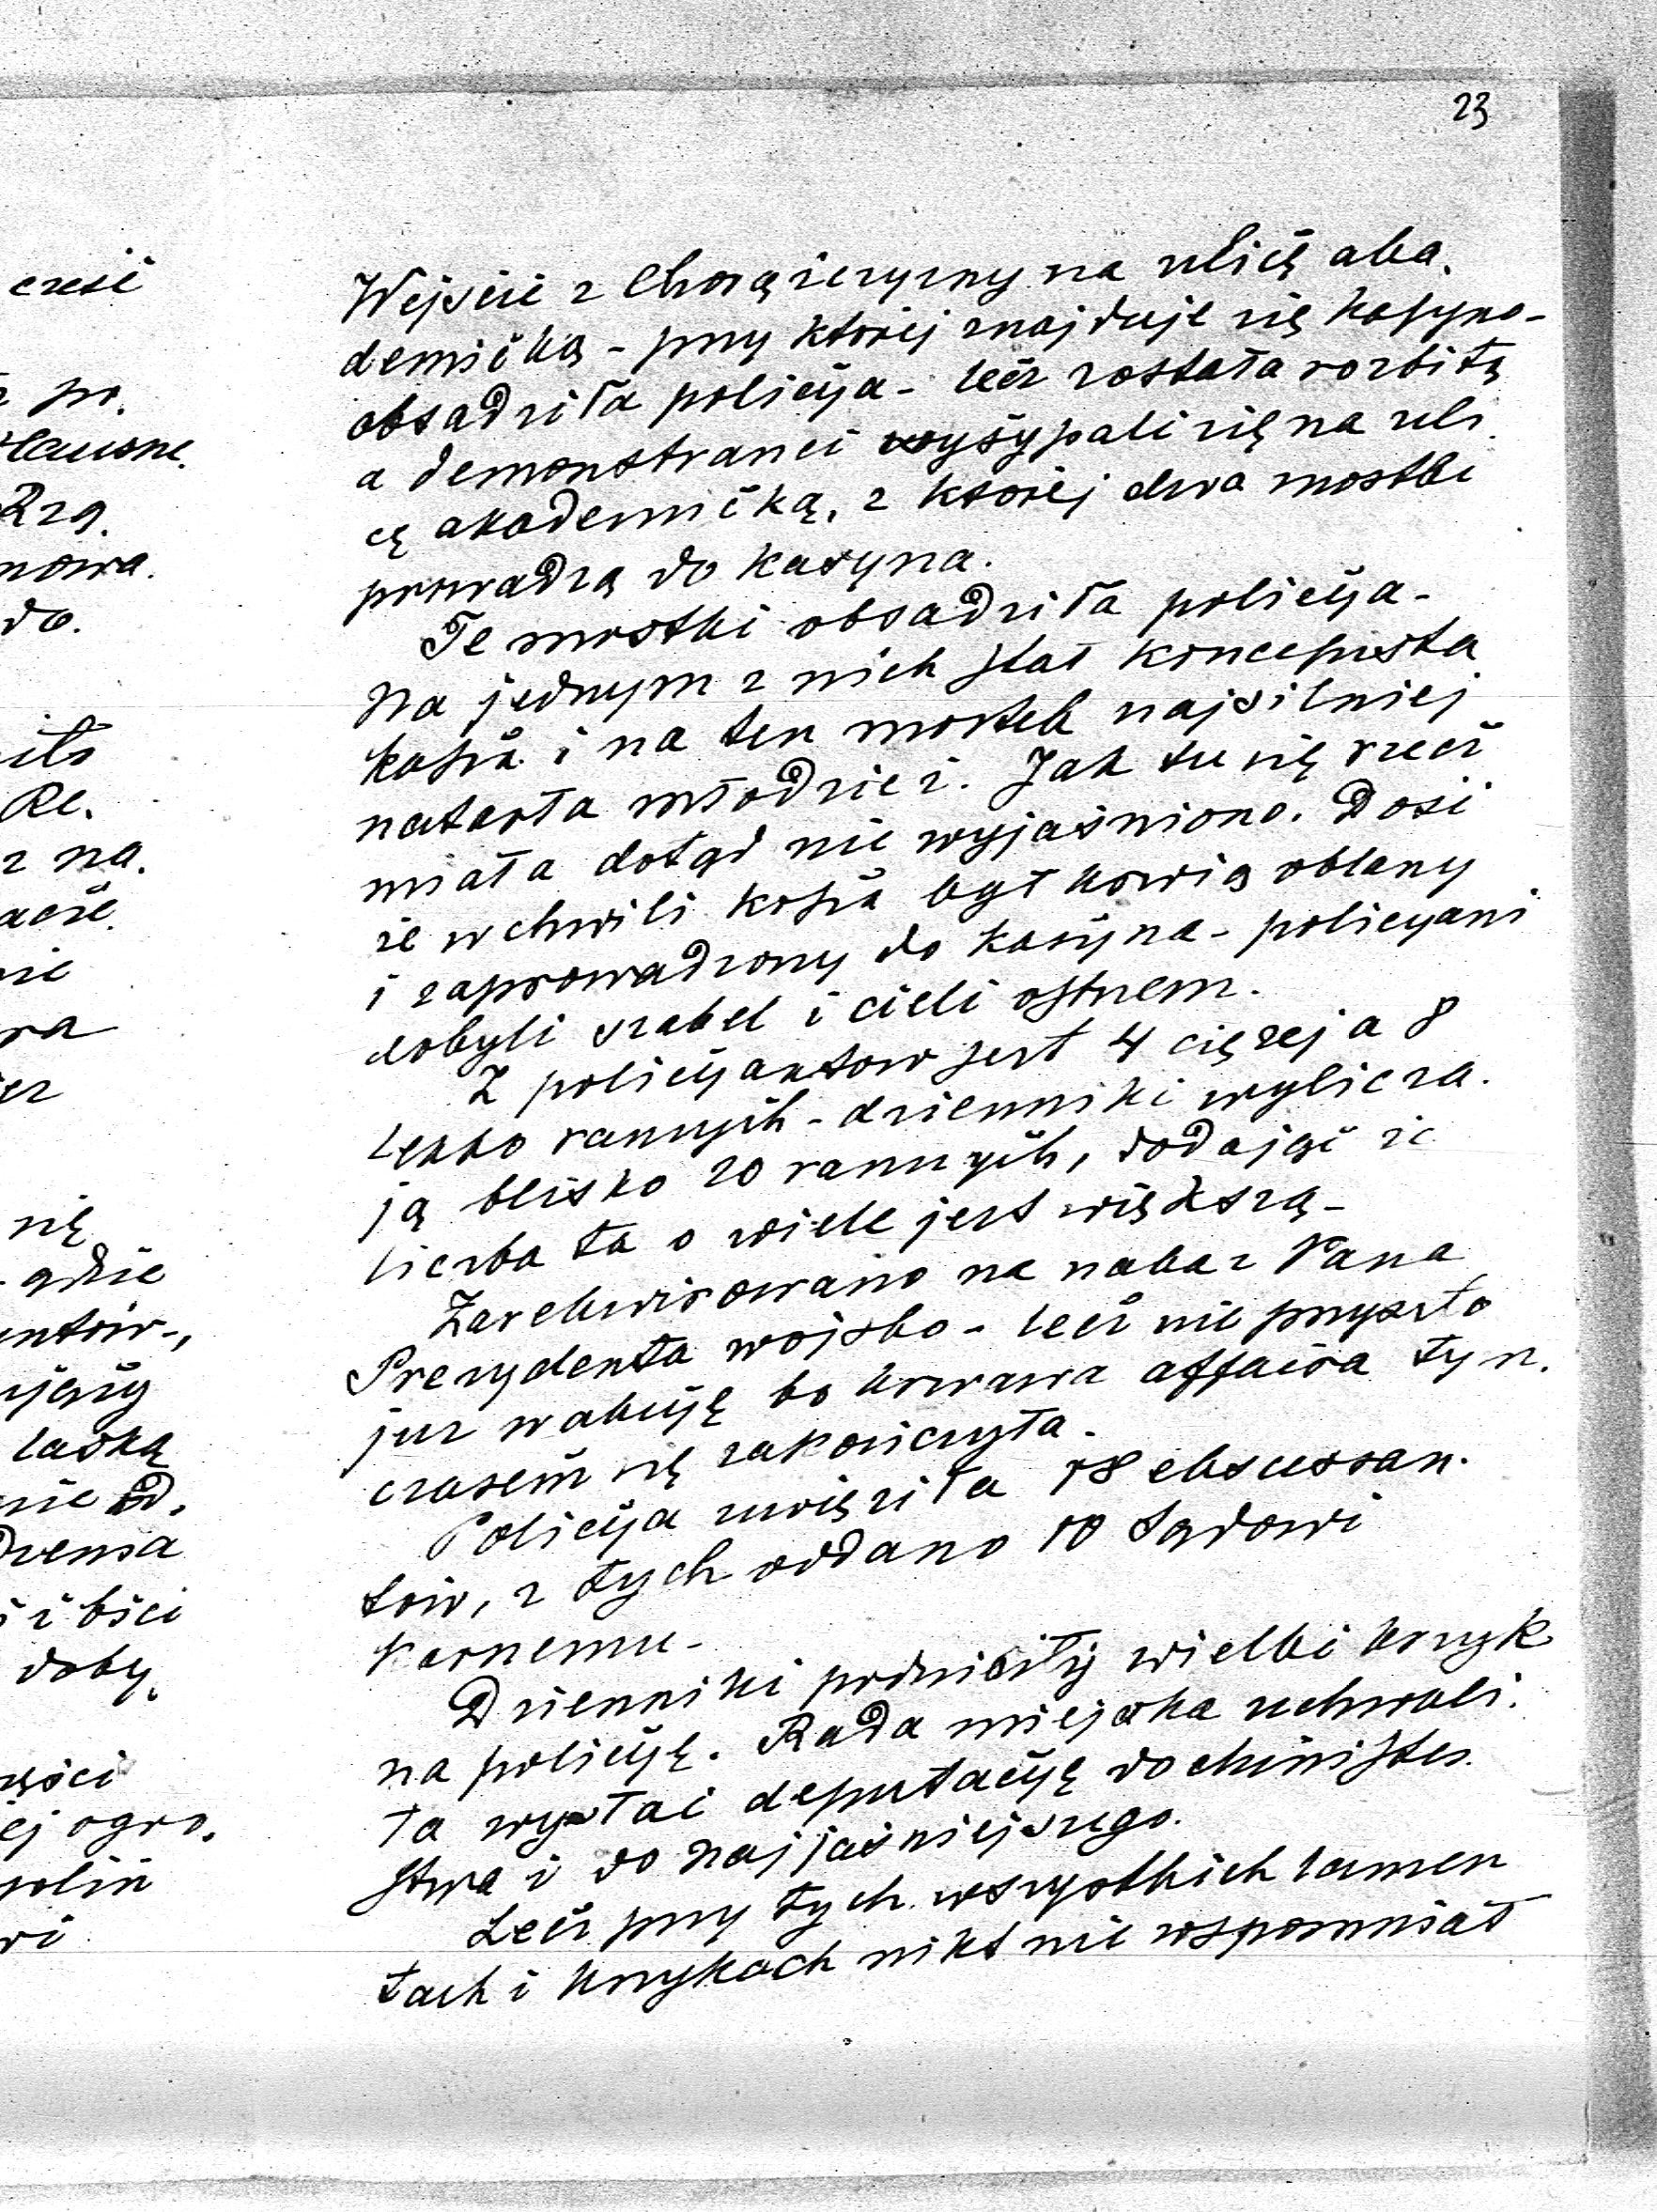 23
Wejście z Chorążczyzny na ulicę aka.
demićką - przy ktorej znajduje się kasyno -
obsadziła policya - lecz została rozbitą
a demonstranci wysypali się na uli.
cę akademićką, z ktorej dwa mostki
prowadzą do kasyna.
Te mostki obsadziła policya -
Na jednym z nich stał koncepista
i na ten mostek najsilniej
natarła młodzież. Jak tu się rzecz
miała dotąd nie wyjaśniono. Dość
że w chwili był krwią oblany
i zaprowadzony do kasyna - policyanci
dobyli szabel i cieli ostrzem.
Z policyantow jest 4 ciężej a 8
lekko rannych - dzienniki wylicza.
ją blisko 20 rannych, dodając że
liczba ta o wiele jest większą -
Zarekwirowano na nakaz Pana
Prezydenta wojsko - lecz nie przyszło
już w akcyę bo krwawa affaira tym.
czasem się zakończyła.
Policya uwięziła 18 ekscessan.
tów, z tych oddano 10 Sądowi
karnemu -
Dzienniki podniosły wielki krzyk
na policyę. Rada miejska uchwali.
ła wysłać deputacyę do Minister.
stwa i do Najjaśniejszego.
Lecz przy tych wszystkich lamen
tach i krzykach nikt nie wspomniał
cześć
po.
Rzą.
nowa.
do.
Re.
z na.
nie
się
gdzie
laską
i bici
doby.
ej ogro.